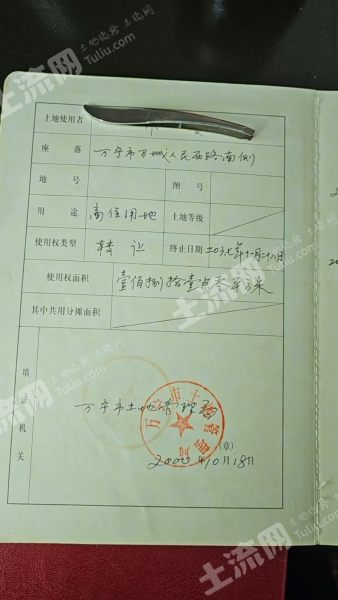 土流网 土地流转 土流网
Tuliu.com
土地使用者
座落 万宁市万城人民西路南侧
地号 图号
用途 商住用地 土地等级
使用权类型 转让 终止日期 二0六七年十一月二十八日
使用权面积 壹佰捌拾壹点叁平方米
其中共用分摊面积
填证机关
万宁市土地管理局
万宁市土地管理局
(章)
2000年10月18日
土流网
Tuliu.com